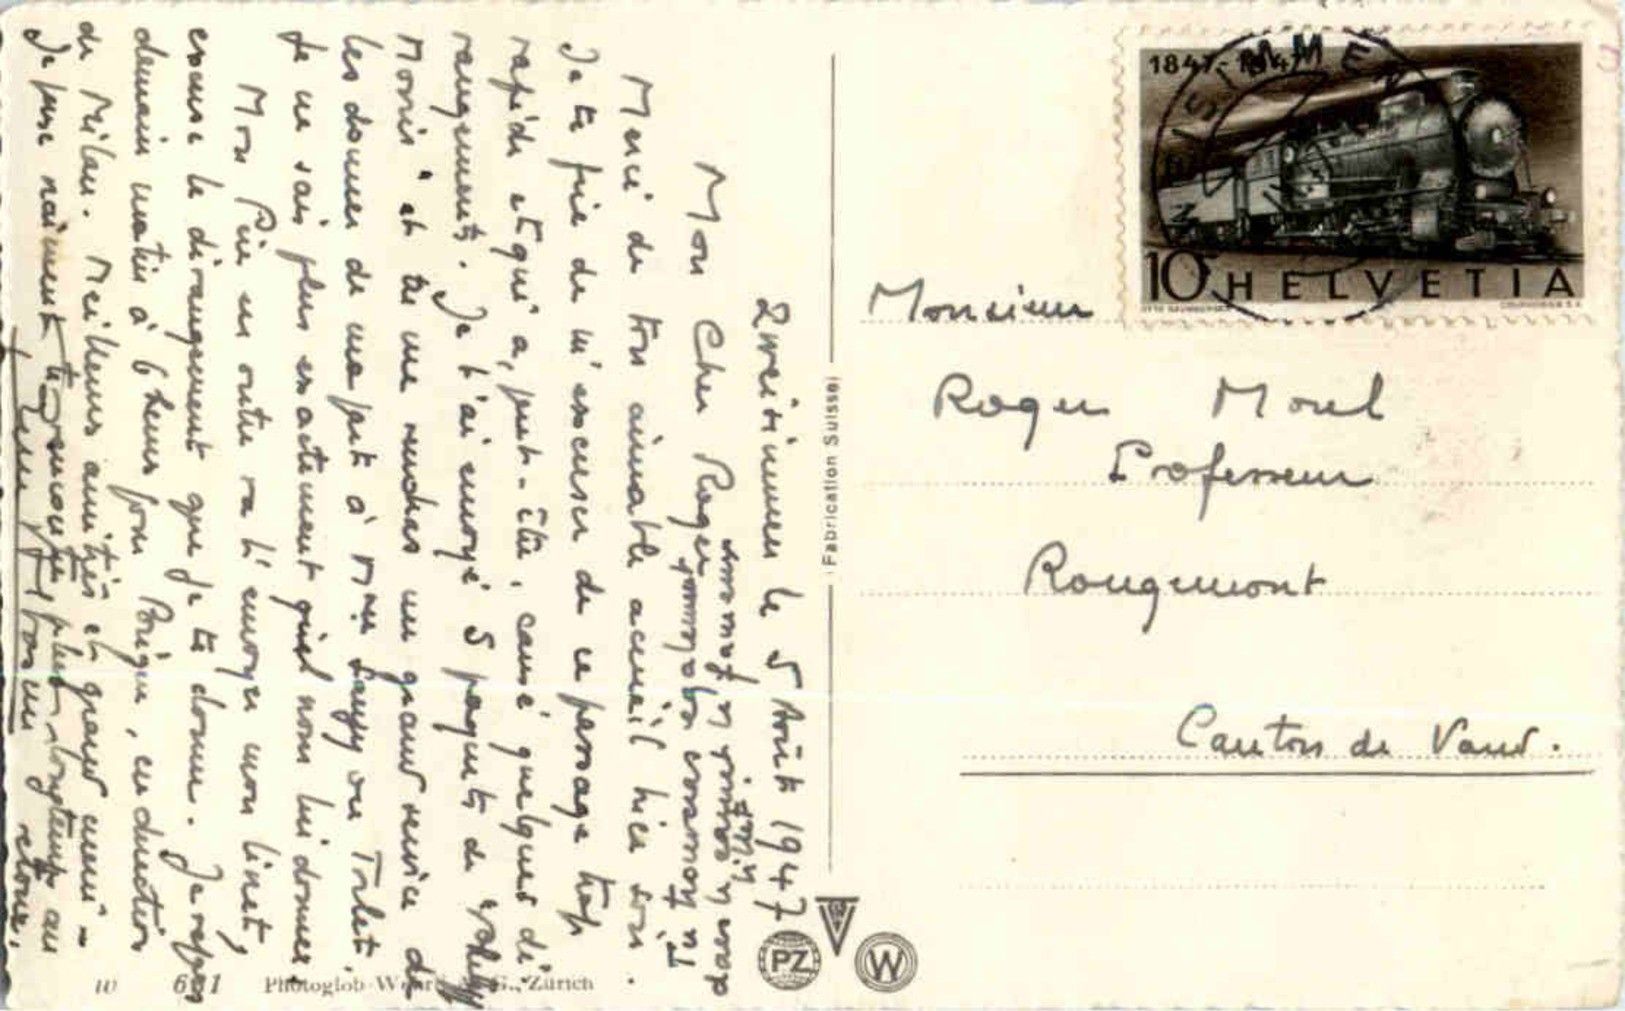 Zweisimmen le 5 Août 1947
Mon Cher Roger
Merci de ton aimable accueil hier soir.
Je te prie de m'excuser de ce passage trop
rapide et qui a, peut-être, causé quelques dé-
rangements. Je t'ai envoyé 5 paquets de
Morris" et tu me rendras un grand service de
les donner de ma part à Mme ou Trolet.
Je ne sais plus exactement quel nom lui donner.
Mon Père en outre va t'envoyer mon livret,
excuse le dérangement que je te donne. Je repars
demain matin à 6 heures pour Brigue, en direction
de Milan. Meilleures amitiés et grand merci -
Je pense vraiment te rencontrer plus longtemps au
retour.
Monsieur
Roger Morel
Professeur
Rougemont
Canton de Vaud.
1847-1947
ZWEISIMMEN
10 HELVETIA
COURVOISIER S.A.
Fabrication Suisse
PZ
W
W 691 Photoglob-Wehrli A.G., Zürich